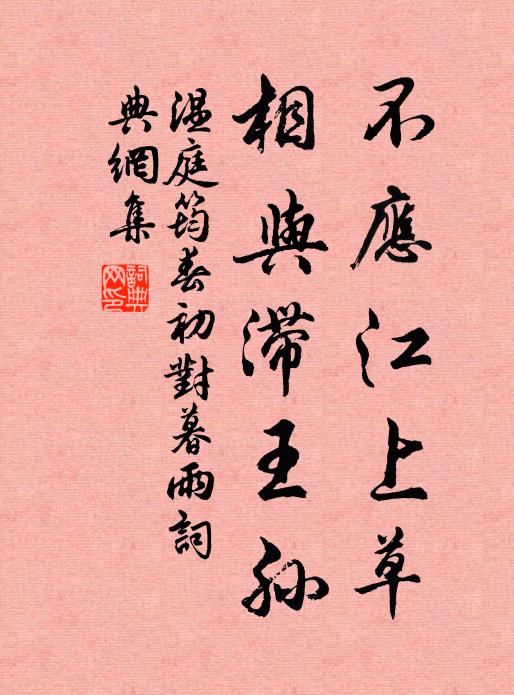 不應江上草
相與滯王孫
温庭筠春初對暮雨詞
典網集
詞典網印